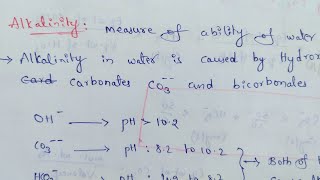 Alkalinity: measure of ability of water
→ Alkalinity in water is caused by Hydro
Card carbonates CO3-- and bicorbonates
OH- → pH > 10.2
CO3-- → pH : 8.2 to 10.2
→ Both of t
HCO3-